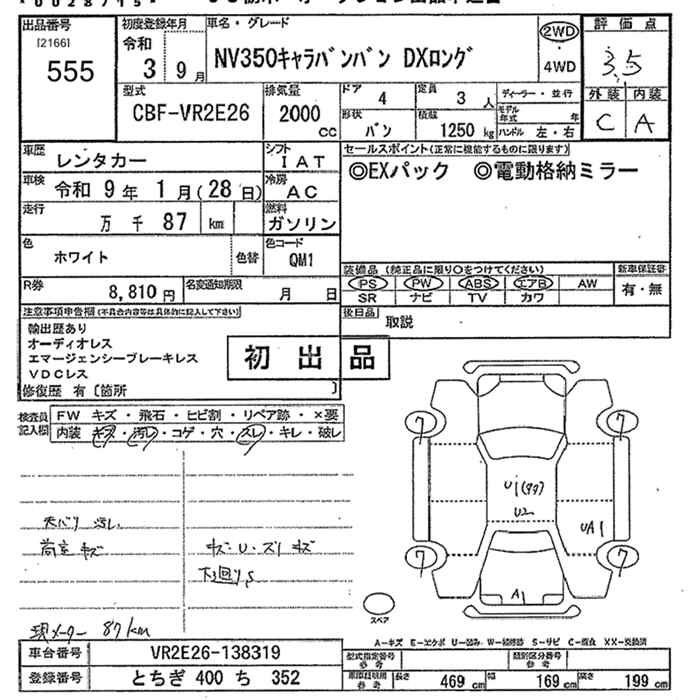 出品番号 初度登録年月 車名・グレード 評価点
[2166] 令和 2WD 3.5
555 3 9月 NV350キャラバンバン DXロング 4WD
外装 内装
型式 排気量 ドア 4 定員 3 人 ディーラー・並行 C A
CBF-VR2E26 2000 cc 形状 バン 積載 1250 kg モデル年式 年
ハンドル 左・右
車歴 レンタカー シフト IAT セールスポイント(正常に機能するものに限ります)
車検 令和 9 年 1 月(28日) 冷房 AC ◎EXパック ◎電動格納ミラー
走行 万 千 87 km 燃料 ガソリン
色 ホワイト 色替 色コード QM1
装備品(純正品に限り○をつけてください) 新車保証書
R券 8,810円 名変通知期限 月 日 PS PW ABS エアB AW 有・無
SR ナビ TV カワ
注意事項申告欄(不具合内容等は具体的に記入して下さい) 後日品 取説
輸出歴あり
オーディオレス
エマージェンシーブレーキレス
VDCレス
初出品
修復歴 有〔箇所 〕
検査員記入欄 FW キズ・飛石・ヒビ割・リペア跡・×要
内装 キズ・汚レ・コゲ・穴・スレ・キレ・破レ
7 7
U2
UA1
7 7
A1
スペア
現メーター 87km
A-キズ E-エクボ U-凹み W-補修跡 S-サビ C-腐食 XX-交換済
車台番号 VR2E26-138319 型式指定番号 参考 類別区分番号 参考
登録番号 とちぎ 400 ち 352 長さ 469 cm 幅 169 cm 高さ 199 cm